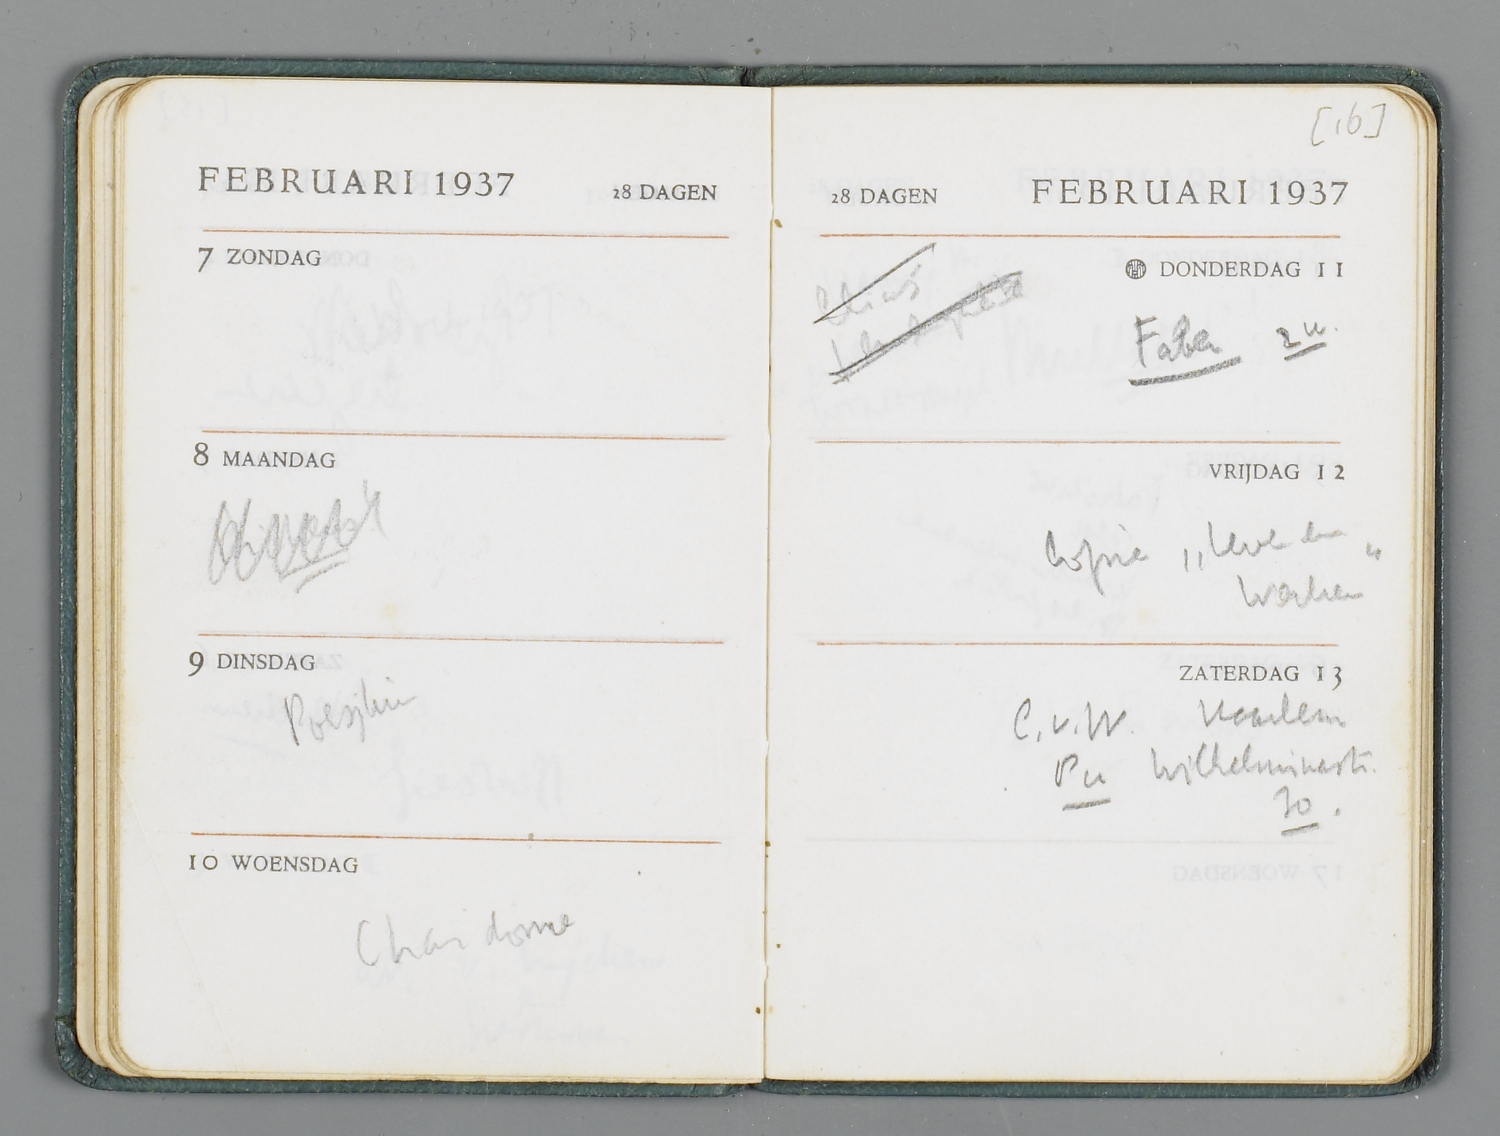 FEBRUARI 1937 28 DAGEN
7 ZONDAG
8 MAANDAG
9 DINSDAG
10 WOENSDAG
[16]
28 DAGEN FEBRUARI 1937
DONDERDAG 11
Faber 2 u.
VRIJDAG 12
Copie „Levende
Werken"
ZATERDAG 13
C.v.W. Haarlem
Wilhelminastr.
30.